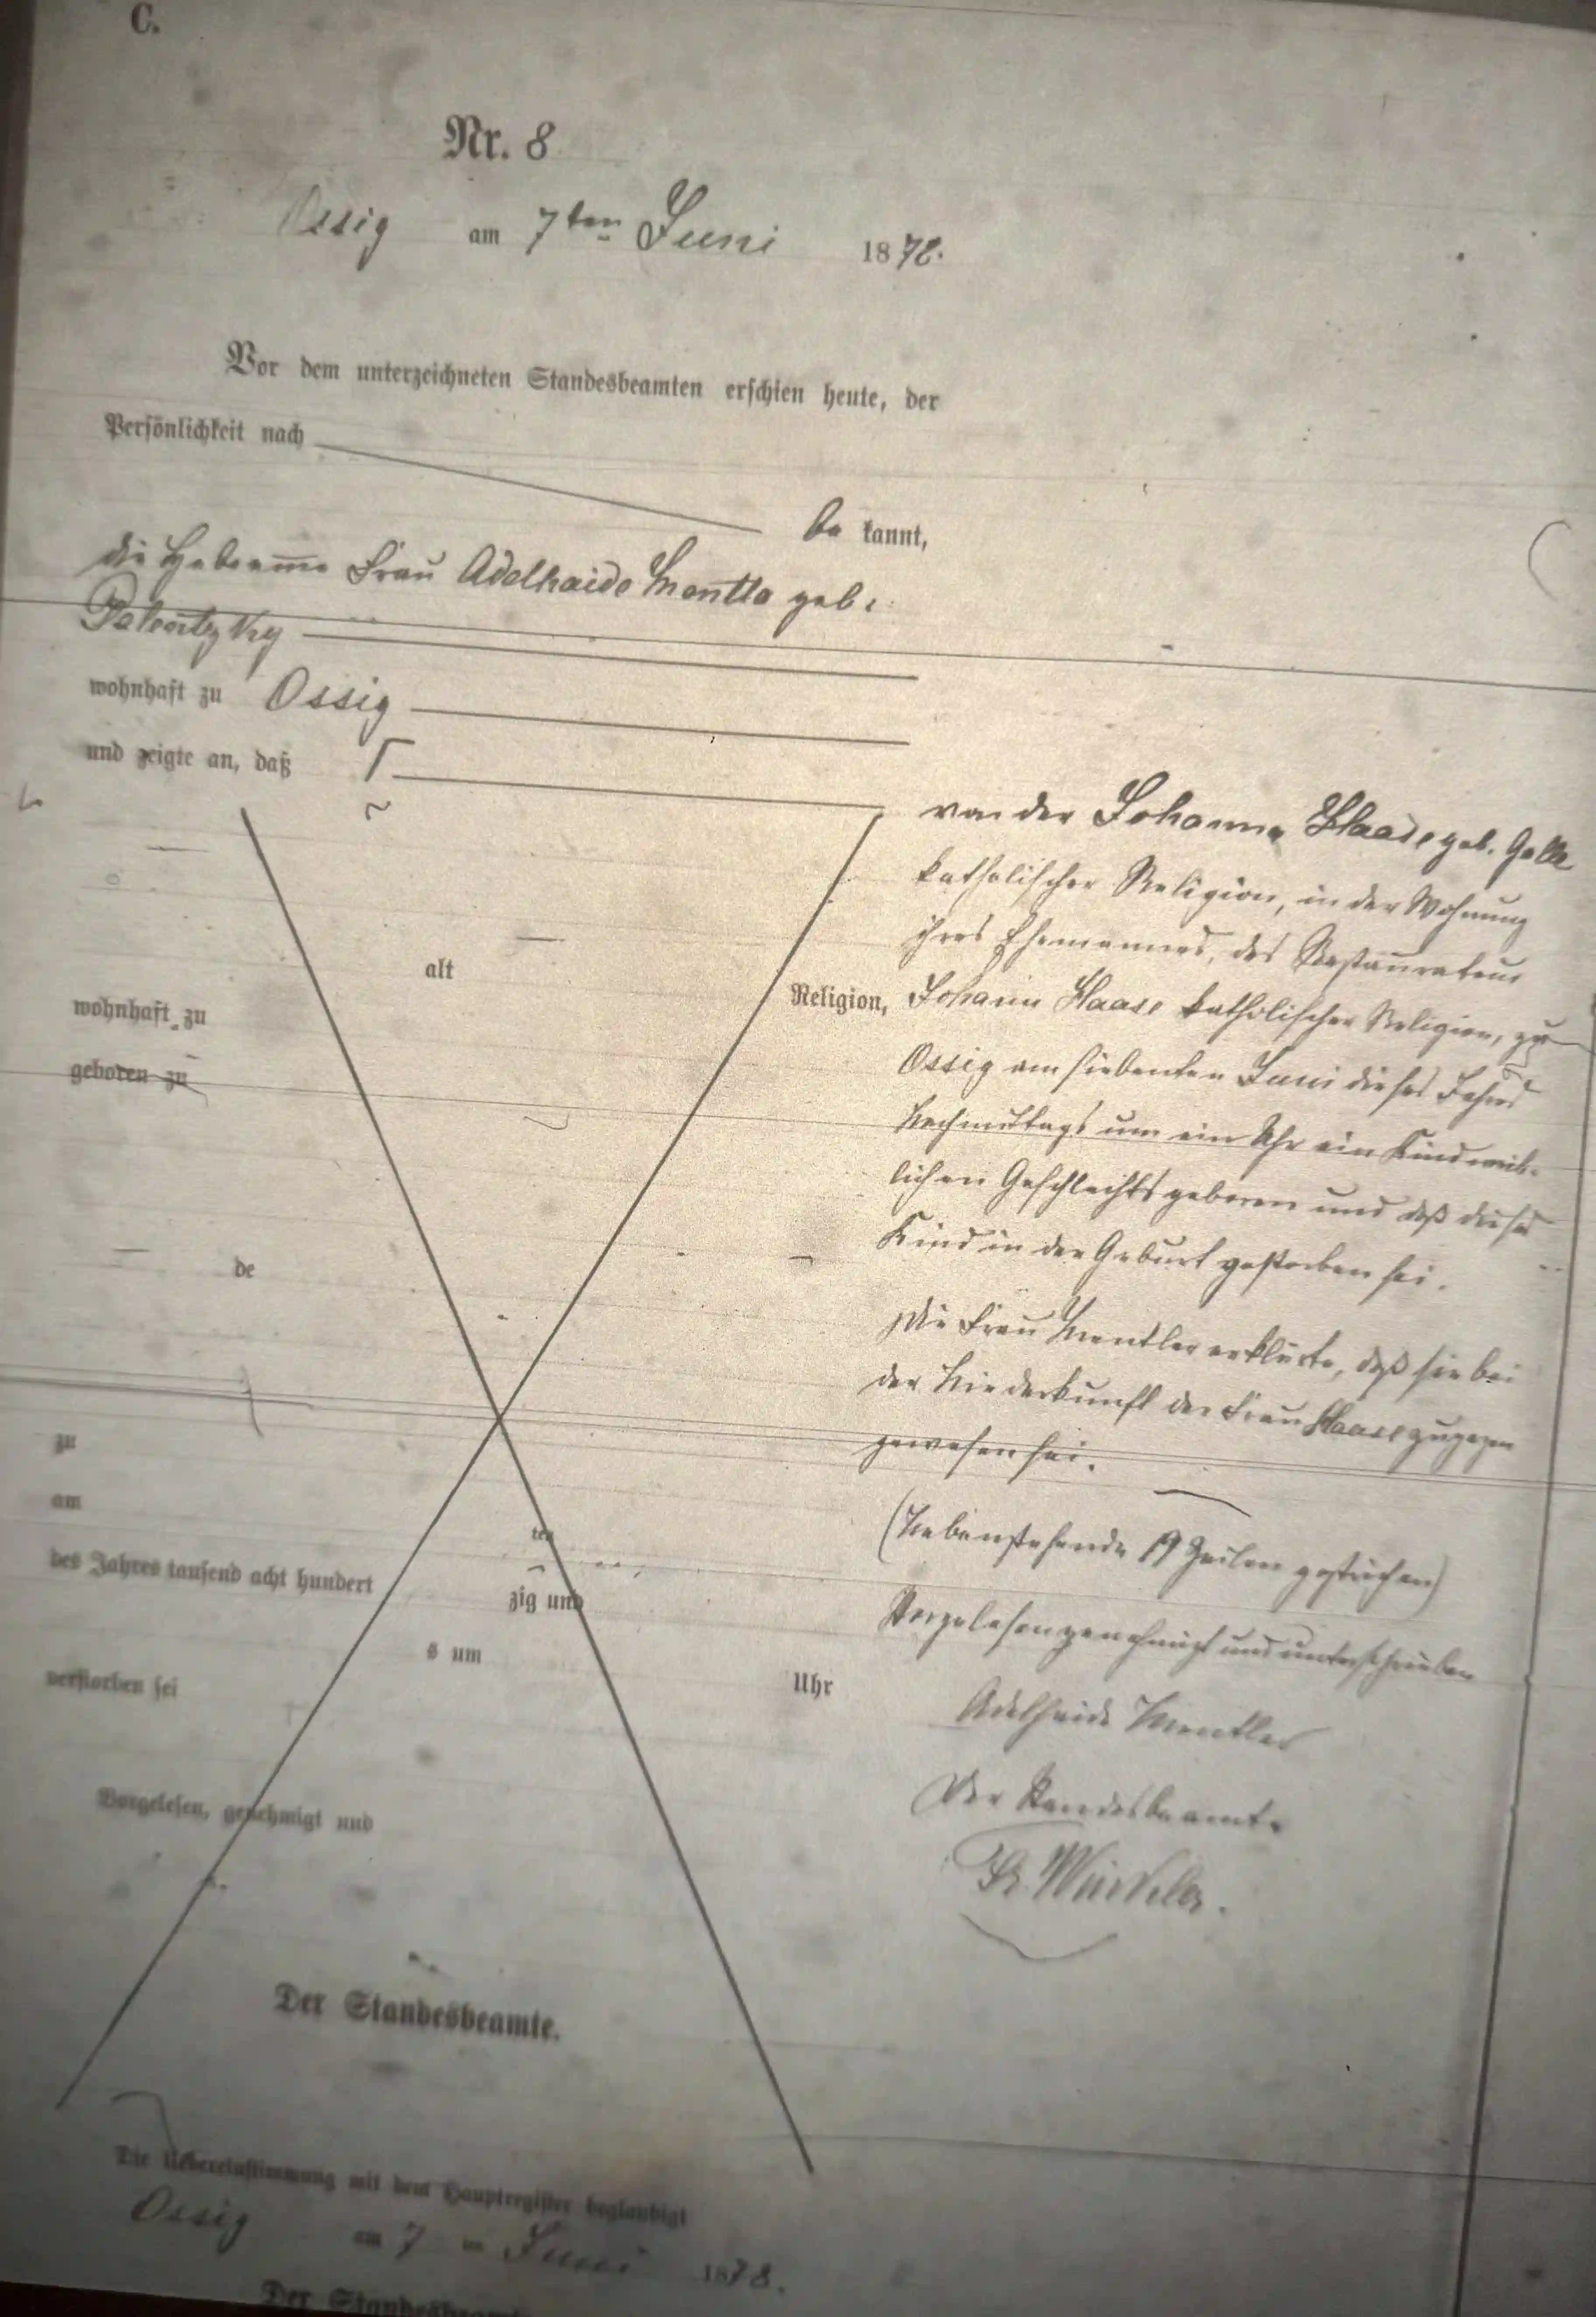 C.
Nr. 8
Ossig am 7ten Juni 1878.
Vor dem unterzeichneten Standesbeamten erschien heute, der
Persönlichkeit nach
be kannt,
die Hebamme Frau Adelhaide geb.
wohnhaft zu Ossig
und zeigte an, daß
von der Johanna Haase geb.
katholischer Religion, in der Wohnung
ihres Ehemannes, des Restaurateur
alt
Religion, Johann Haase katholischer Religion, zu
wohnhaft zu
Ossig am siebenten Juni dieses Jahres
geboren zu
Nachmittags um ein Uhr ein Kind weib-
lichen Geschlechts geboren und daß dieses
Kind in der Geburt gestorben sei.
de
Die Frau Mentler erklärte, daß sie bei
der Niederkunft der Frau Haase zugegen
gewesen sei.
zu
am
ten
(Nebenstehende 19 Zeilen gestrichen)
des Jahres tausend acht hundert zig und
Vorgelesen genehmigt und unterschrieben
s um Uhr
verstorben sei
Adelheide Mentler
Vorgelesen, genehmigt und
Der Standesbeamte
Der Standesbeamte.
Die Uebereinstimmung mit dem Hauptregister beglaubigt
Ossig am 7 Juni 1878.
Der Standesbeamte